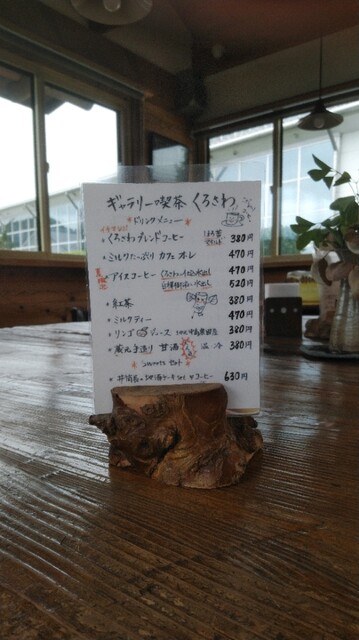 ギャラリー喫茶 くろさわ
＊ドリンクメニュー＊
・くろさわブレンドコーヒー 380円
・ミルクたっぷり カフェオレ 470円
・アイスコーヒー 470円
520円
・紅茶 380円
・ミルクティー 470円
・リンゴ ジュース 380円
・蔵元手造り 甘酒 温 冷 380円
＊Sweets セット＊
コーヒー 630円